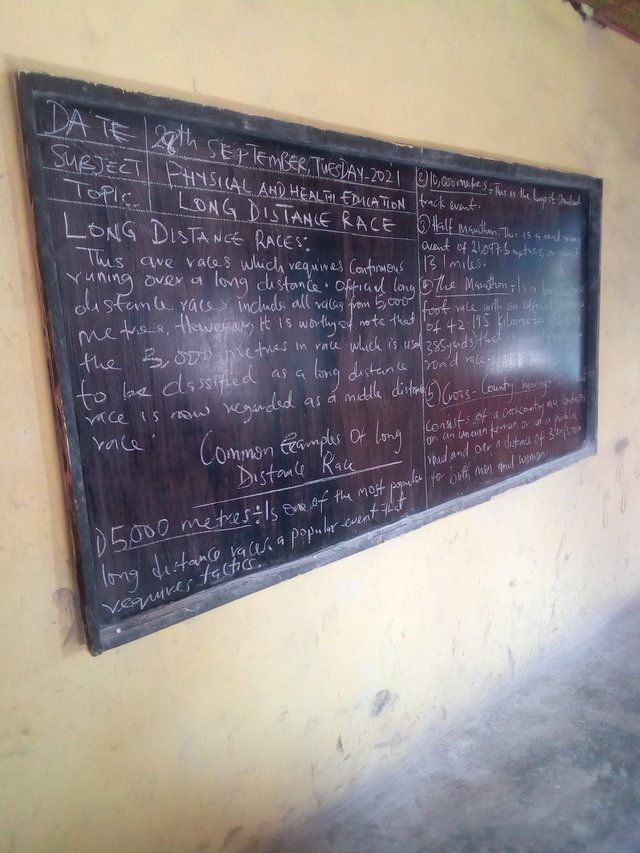 DATE 28th SEPTEMBER, TUESDAY-2021
SUBJECT PHYSICAL AND HEALTH EDUCATION
TOPIC LONG DISTANCE RACE
LONG DISTANCE RACES:
This are races which requires Continuous
runing over a long distance. Official long
distance races include all races from 5,000
metres, However, It is worthy of note that
the 3,000 metres in race which is used
to be classified as a long distance
race is now regarded as a middle distance
race.
Common Examples Of Long
Distance Race
1) 5,000 metres:- Is one of the most popular
long distance races. a popular event that
requires tactics.
② 10,000 metres:- This is the longest standard
track event.
③ Half Marathon. This is a road running
event of 21,097.5 metres, or about
13.1 miles.
④ The Marathon:- Is a long
foot race with an official
of 42.195 kilometre
385 yards) that
road race.
⑤ Cross-Country runing:-
Consists of a crosscountry race conducted
on an uneven terrain or on a public
road and over a distance of 3km
for both men and women.